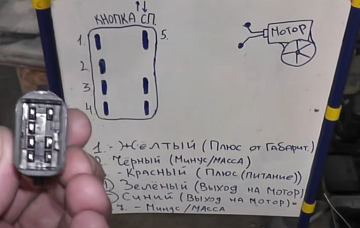 КНОПКА СП
↑↓
1. 5.
2
3
4
МОТОР
1. - ЖЁЛТЫЙ (Плюс от Габарит.)
2. Чёрный (Минус/МАССА)
- Красный (Плюс (питание))
Зелёный (Выход на МОТОР)
Синий (Выход на МОТОР)
7. - Минус/МАССА